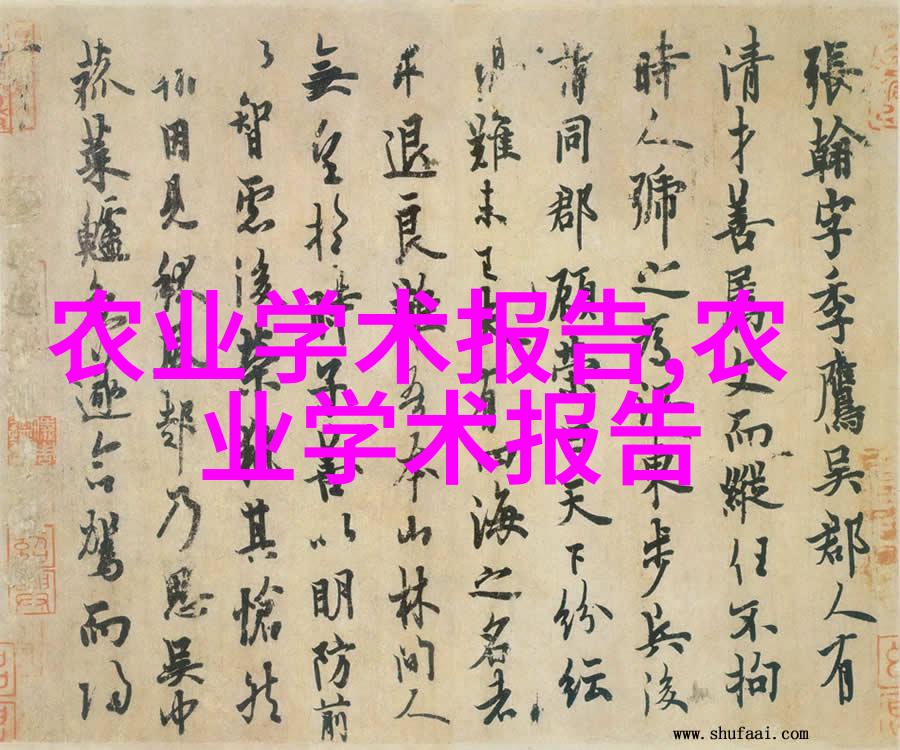 農业学术报告,农
业学术报告
張翰字季鷹吳郡人有
清才善屬文而縱任不拘
時人號之為江東步兵後
同郡顧榮曰天下紛紜
難未已夫有四海之名者
求退良難吾本山林間人
無望於時子善以明防前
以智慮後榮執其愴然
翰因見秋風起乃思吳中
菰菜鱸魚遂命駕而歸
www.shufaai.com